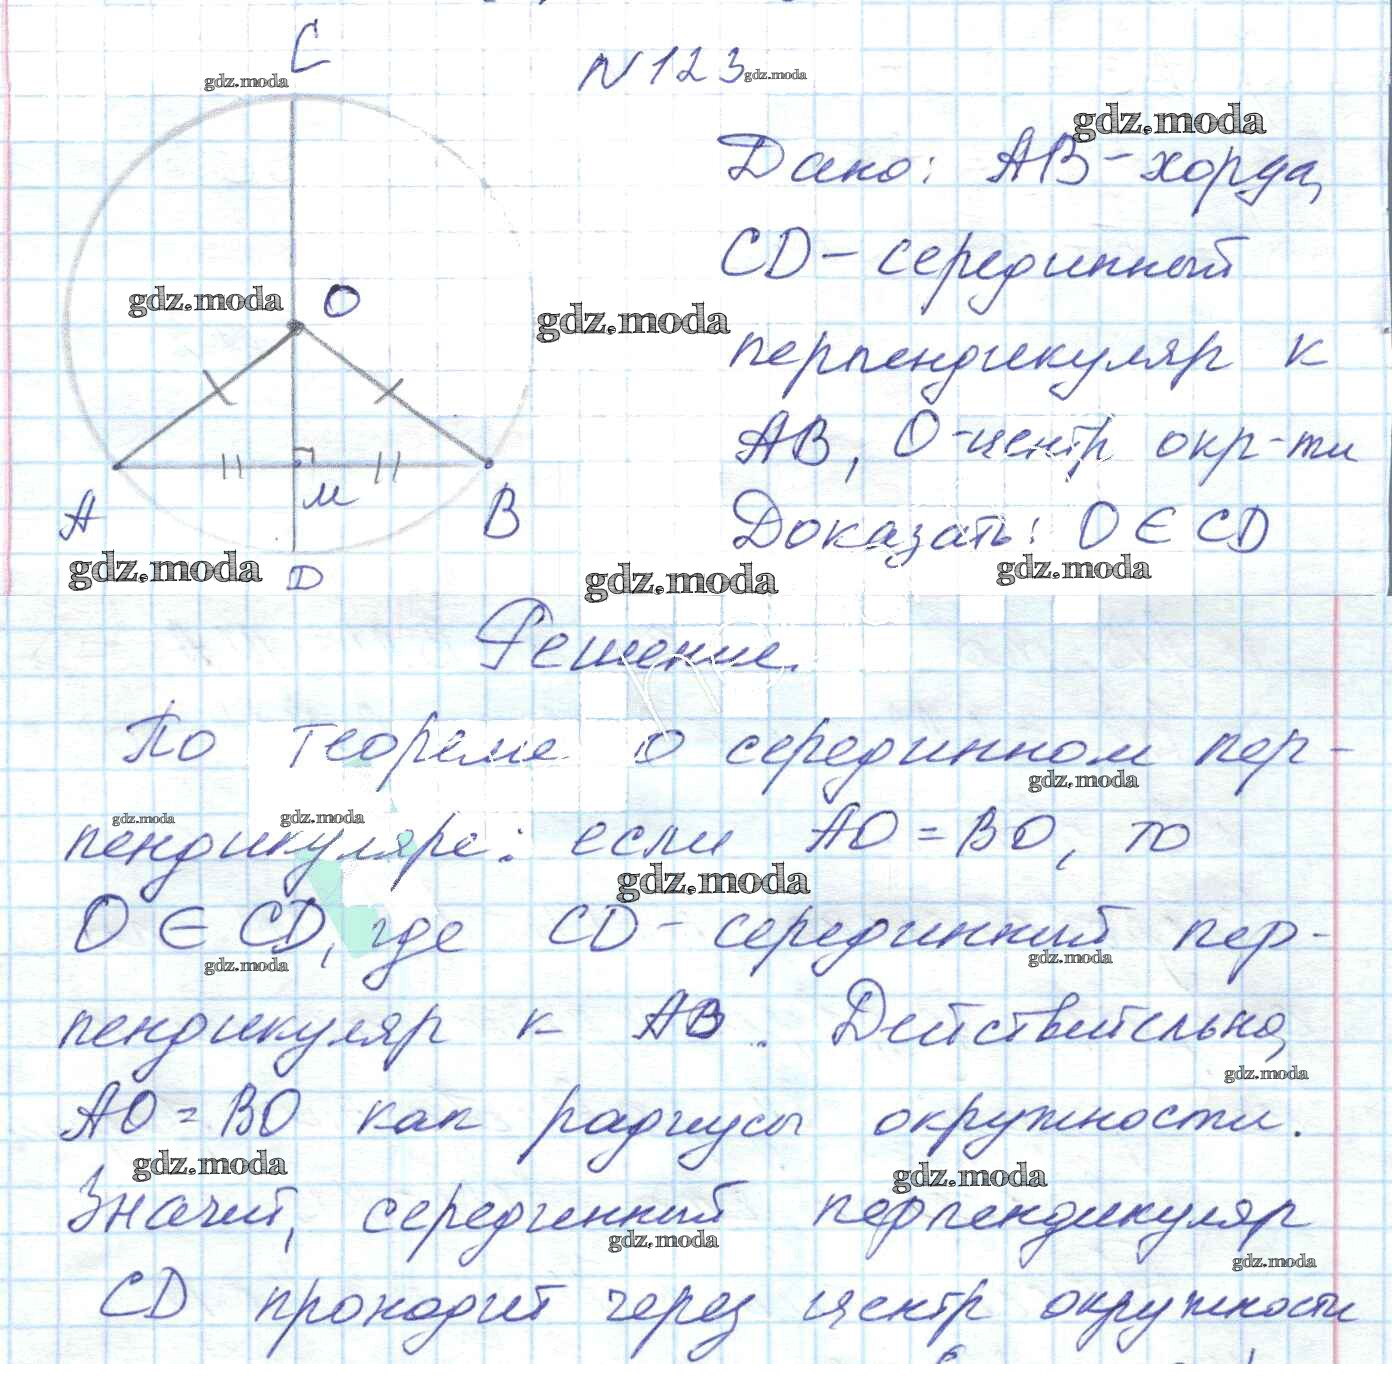 C
N 123
gdz.moda
gdz.moda
gdz.moda
Дано: AB - хорда,
CD - серединный
gdz.moda
O
gdz.moda
перпендикуляр к
AB, O - центр окр-ти
M
A
B
Доказать: O ∈ CD
gdz.moda
D
gdz.moda
gdz.moda
Решение.
По теореме о серединном пер-
gdz.moda
gdz.moda
gdz.moda
пендикуляре: если AO = BO, то
gdz.moda
O ∈ CD, где CD - серединный пер-
gdz.moda
gdz.moda
пендикуляр к AB. Действительно,
gdz.moda
AO = BO как радиусы окружности.
gdz.moda
gdz.moda
Значит, серединный перпендикуляр
gdz.moda
gdz.moda
CD проходит через центр окружности